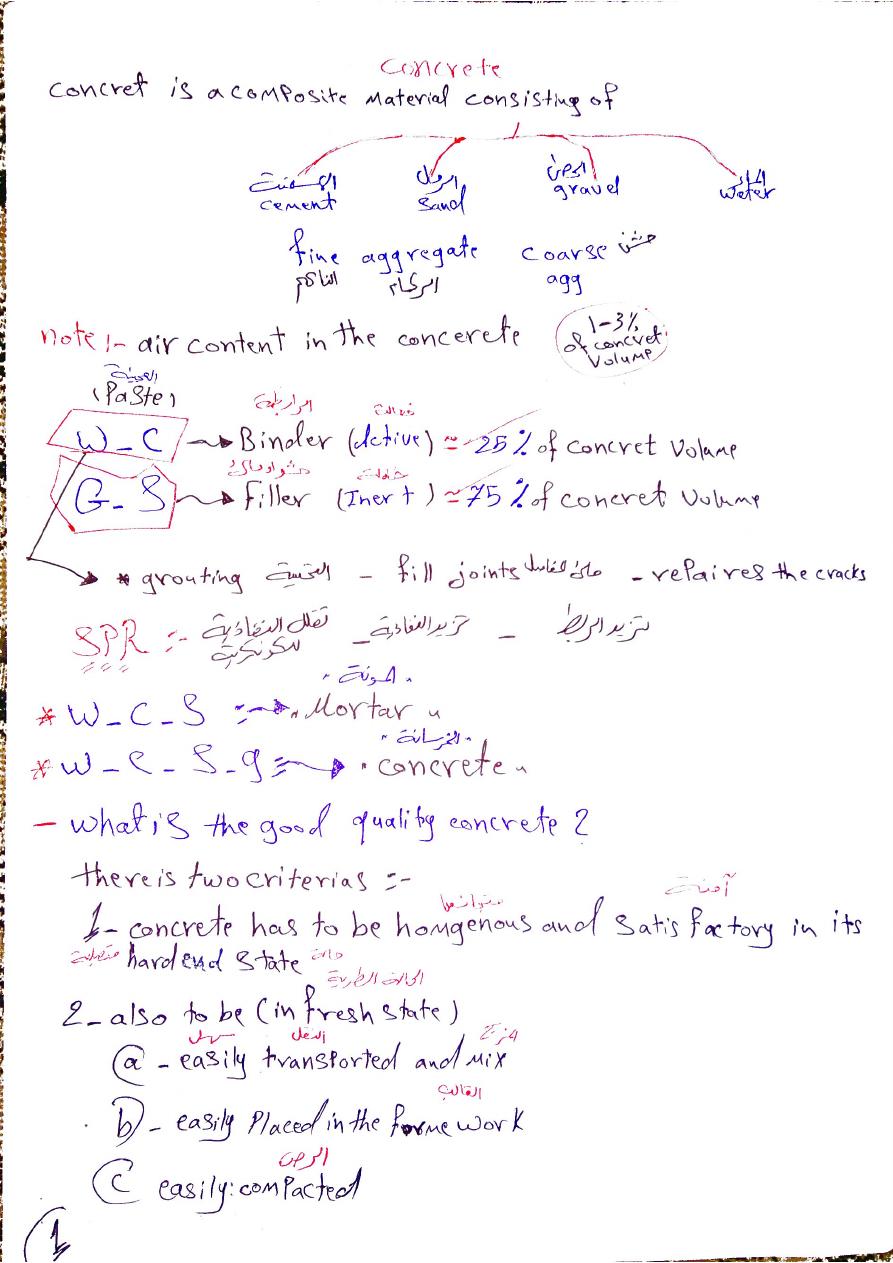 concrete
concret is a composite Material consisting of
الرمل
cement sand gravel Weter
fine aggregate coarse خشن
الناعم الركام agg
note :- air content in the concerete
1-3%
of concret
Volume
(Paste)
W_C → Binder (Active) ≈ 25% of concret Volume
G_S → Filler (Inert) ≈ 75% of concret Volume
* grouting - fill joints - repaires the cracks
SPR :- تقلل النفاذية - تزيد النفاذية - تزيد الربط
المونة
* W_C_S :→ "Mortar"
"الخرسانة"
* W_C_S_g → "concrete"
- what is the good quality concrete ?
there is two criterias :-
آمنة
1- concrete has to be homgenous and satisfactory in its
hardend state حالة
الحالة الطرية
2- also to be (in fresh state)
سهل النقل مزج
(a) - easily transported and Mix
القالب
b) - easily Placed in the forme work
الرص
(c easily:compacted
1